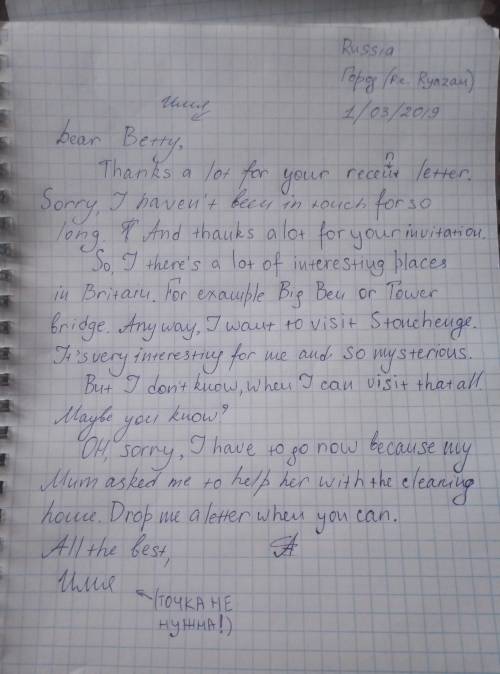 Russia
Город (г. Ryazan)
1/03/2019
имя
Dear Betty,
Thanks a lot for your recent letter.
Sorry, I haven't been in touch for so
long. And thanks a lot for your invitation.
So, I there's a lot of interesting places
in Britain. For example Big Ben or Tower
bridge. Anyway, I want to visit Stonehenge.
It's very interesting for me and so mysterious.
But I don't know, when I can visit that all.
Maybe you know?
OH, sorry, I have to go now because my
Mum asked me to help her with the cleaning
house. Drop me a letter when you can.
All the best,
Имя
(ТОЧКА НЕ
НУЖНА!)